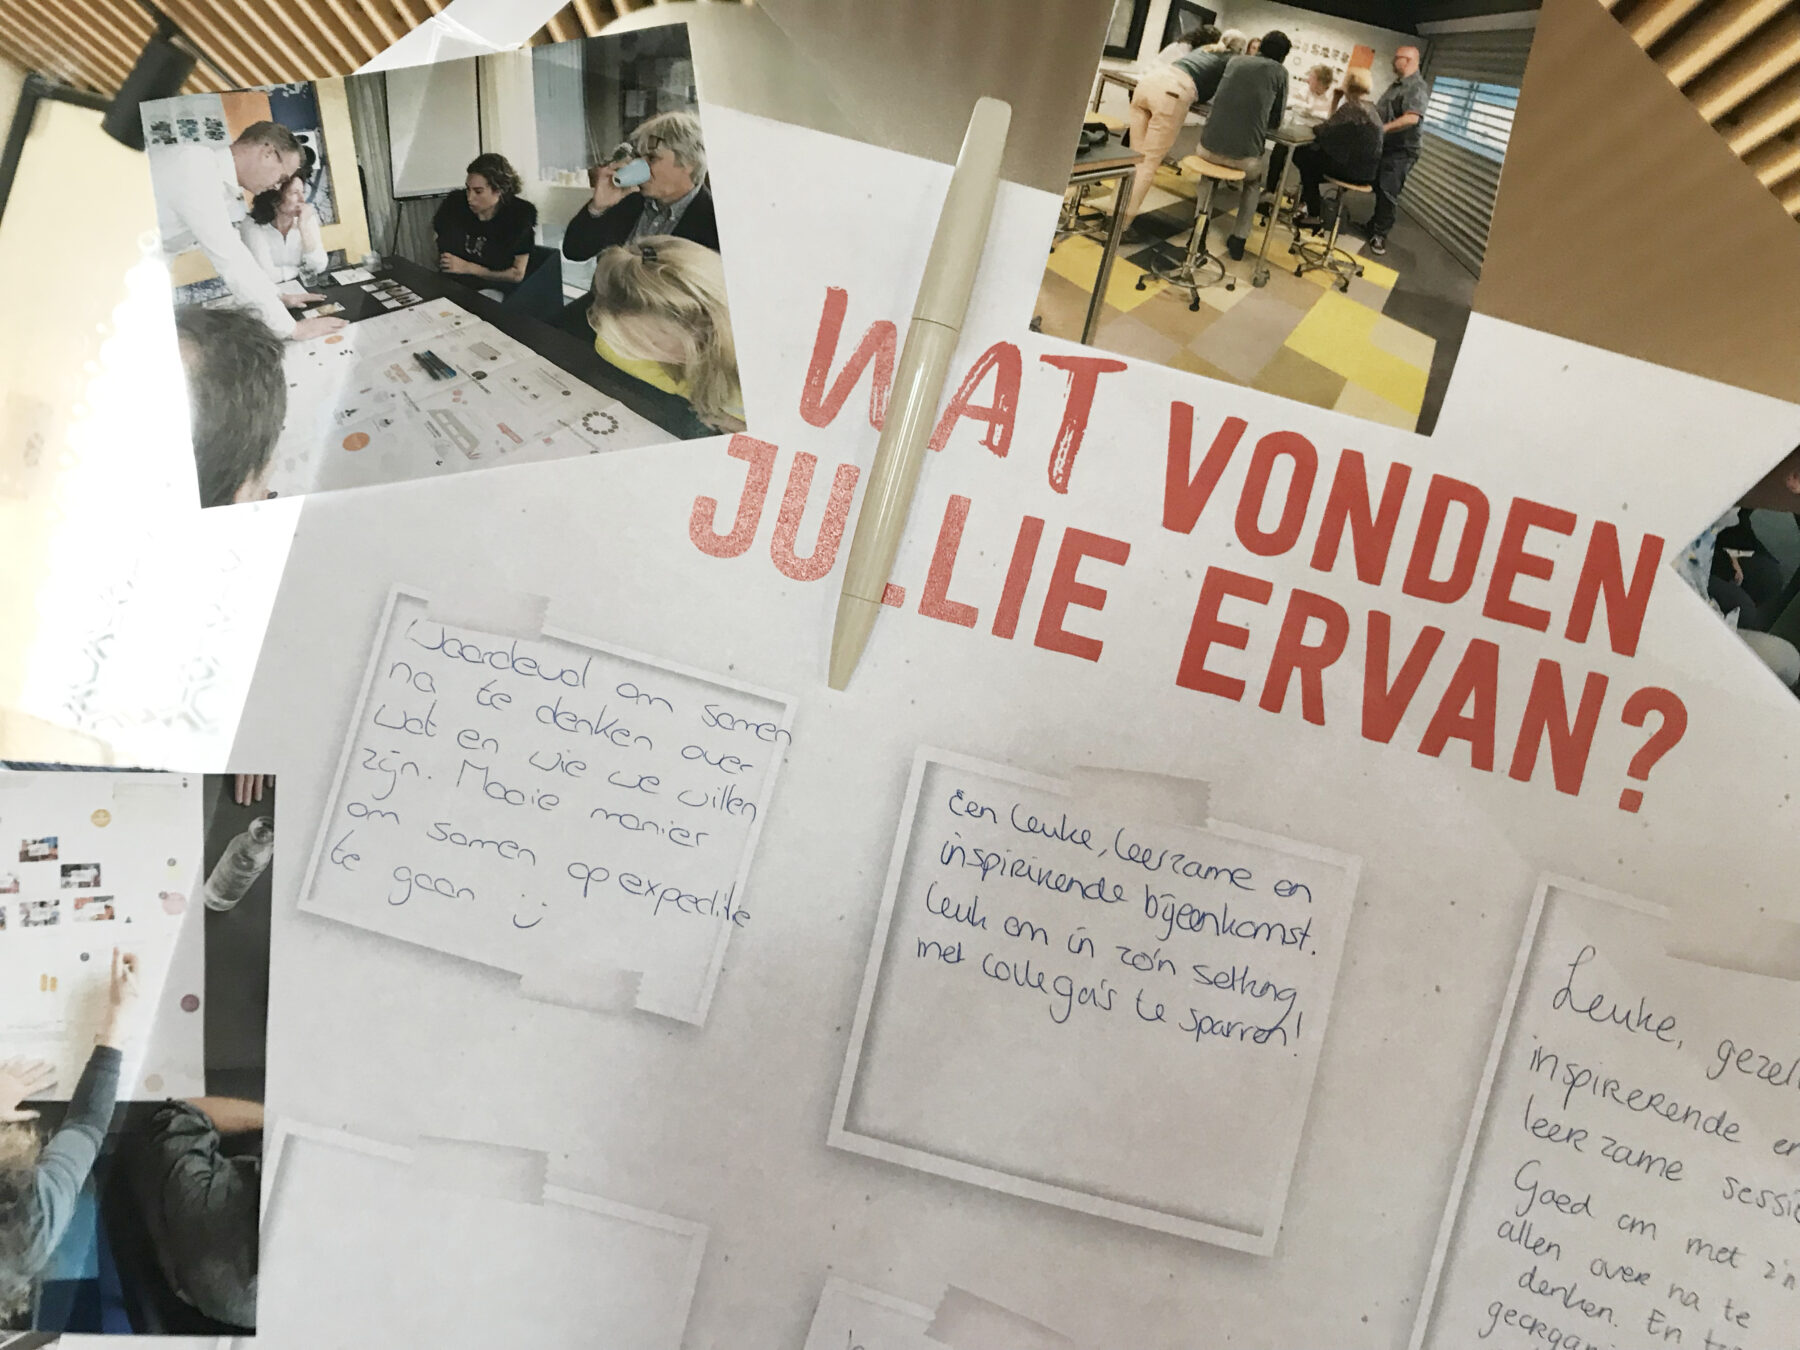 WAT VONDEN
JULLIE ERVAN?
Waardevol om samen
na te denken over
wat en wie we willen
zijn. Mooie manier
om samen op expeditie
te gaan :)
Een leuke, leerzame en
inspirirende bijeenkomst.
Leuk om in zo'n setting
met collega's te sparren!
Leuke,
inspirerende
leerzame
Goed om met z'n
allen over na te
denken. En